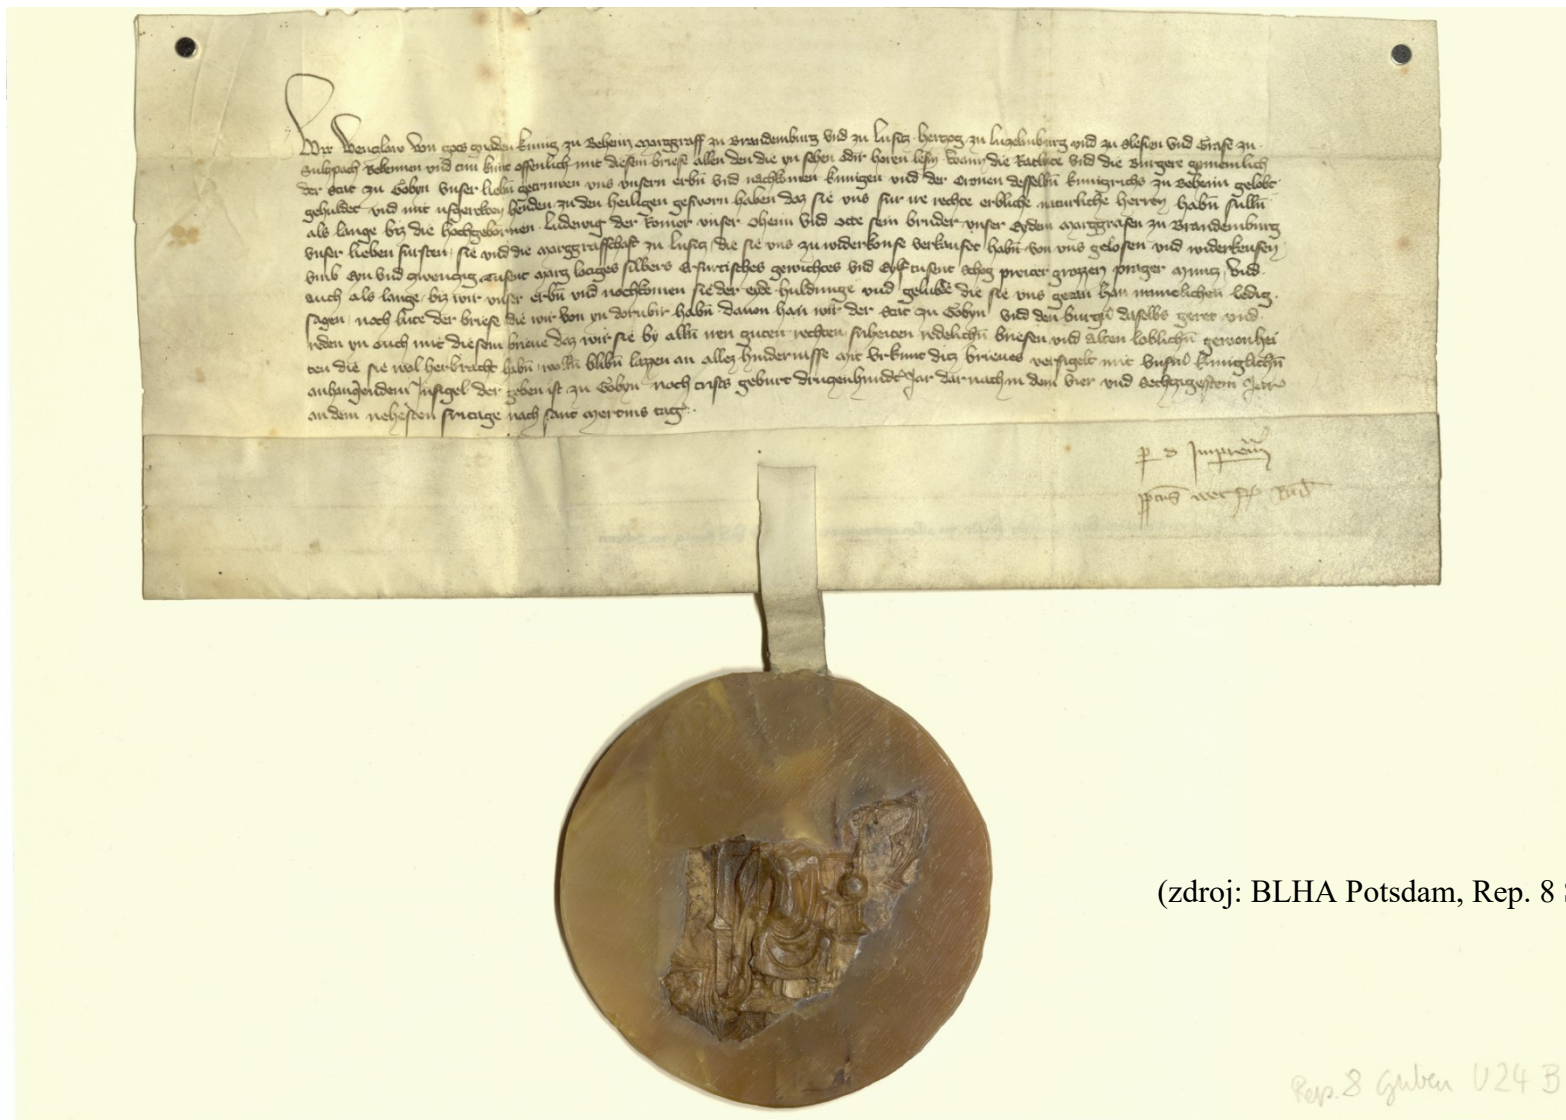 Wir Wenczlaw von gots gnaden kunig zu Beheim Marggraff zu Brandemburg vnd zu Lusicz herczog zu Luczelnburg vnd zu Slesien vnd Grafe zu
Sulczpach Bekennen vnd tun kunt offenlich mit diesem briefe allen den die yn sehen odir horen lesen wann die Ratlute vnd die Burgere gemeinlich
der Stat zu Gobyn vnser lieben getruwen vns vnsern erbn vnd nachkomen kunigen vnd der Cronen desselbn kunigrichs zu Beheim gelobt
gehuldet vnd mit vfgerekten henden zu den heiligen gesworn haben daz sie vns fur ire rechte erbliche naturliche herren habn sulln
als lange biz die hochgebornen Ludewig der Romer vnser Oheim vnd Otte sein bruder vnser Eydem Marggrafen zu Brandemburg
vnser lieben fursten sie vnd die Marggrafschaft zu Lusicz die sie vns zu widerkoufe verkaufet habn von vns gelosen vnd widerkeufen
vmb Eyn vnd zwenczig Tusent Marg lotiges silbers Erfurtisches gewichtes vnd Eylf tusent Schog preiter grozzen prager Muncz vnd
auch als lange biz wir vnser erbn vnd nochkomen sie der eyde huldunge vnd gelubde die sie vns getan han muntlichen ledig
sagen noch lute der briefe die wir von yn dorubir habn dauon han wir der Stat zu Gobyn vnd den burgern daselbs geret vnd
reden yn ouch mit diesem brieue daz wir sie by alln iren guten rechten friheiten redelichn briefen vnd alten loblichn gewonhei
ten die sie wol herbracht habn wolln blibn lazzen an allez hindernisse Mit vrkunt dicz brieues versigelt mit vnserm kuniglichn
anhangendem Insigel der geben ist zu Gobyn noch crists geburt drugenhundert Jar darnach in dem vier vnd Sechczigestem Jare
an dem nehesten fritage nach sant Mertins tag
p d Impera
(zdroj: BLHA Potsdam, Rep. 8
Rep. 8 Guben U 24 B